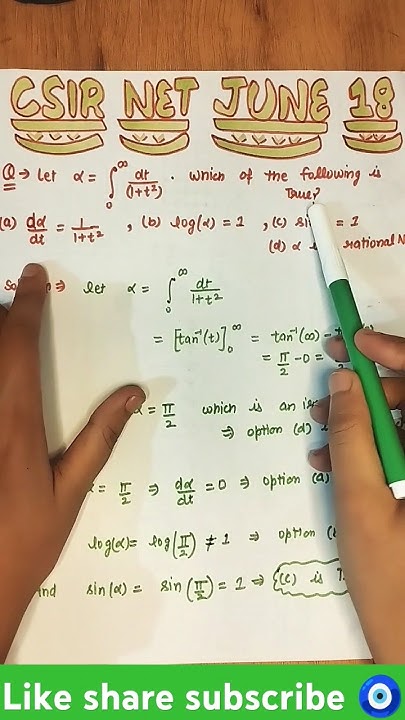 CSIR NET JUNE 18
Q → Let α = ∫₀^∞ dt/(1+t²) . Which of the following is
True?
(a) dα/dt = 1/(1+t²) , (b) log(α) = 1 , (c) = 1
(d) α rational
⇒ let α = ∫₀^∞ dt/(1+t²)
= [tan⁻¹(t)]₀^∞ = tan⁻¹(∞) –
= π/2 – 0 =
α = π/2 which is an
⇒ option (d)
= π/2 ⇒ dα/dt = 0 ⇒ option (a)
log(α) = log(π/2) ≠ 1 ⇒ option
sin(α) = sin(π/2) = 1 ⇒ (c) is
Like share subscribe 🧿